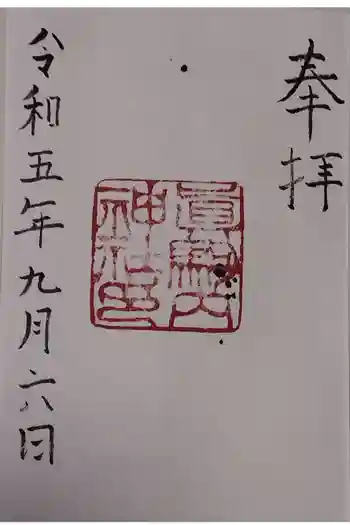 奉拝
神社印
令和五年九月六日